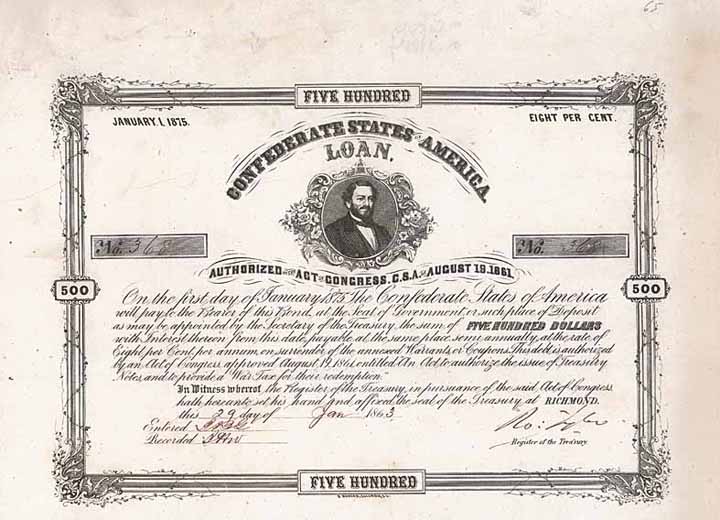 65
FIVE HUNDRED
JANUARY. 1. 1875. EIGHT PER CENT.
CONFEDERATE STATES OF AMERICA.
LOAN.
No. 368 No. 368
AUTHORIZED BY THE ACT OF CONGRESS. C.S.A. OF AUGUST 19. 1861.
500 500
On the first day of January 1875 The Confederate States of America
will pay to the Bearer of this Bond, at the Seat of Government, or such place of Deposit
as may be appointed by the Secretary of the Treasury, the sum of FIVE HUNDRED DOLLARS
with Interest thereon from this date, payable at the same place semi annually, at the rate of
Eight per Cent. per annum, on surrender of the annexed Warrants or Coupons. This debt is authorized
by an Act of Congress, approved August 19. 1861, entitled "An Act to authorize the issue of Treasury
Notes and to provide a War Tax for their redemption."
In Witness whereof, the Register of the Treasury, in pursuance of the said Act of Congress,
hath hereunto set his hand and affixed the seal of the Treasury, at RICHMOND,
this 29 day of Jan 1863
Entered
Recorded
Ro: Tyler
Register of the Treasury.
FIVE HUNDRED